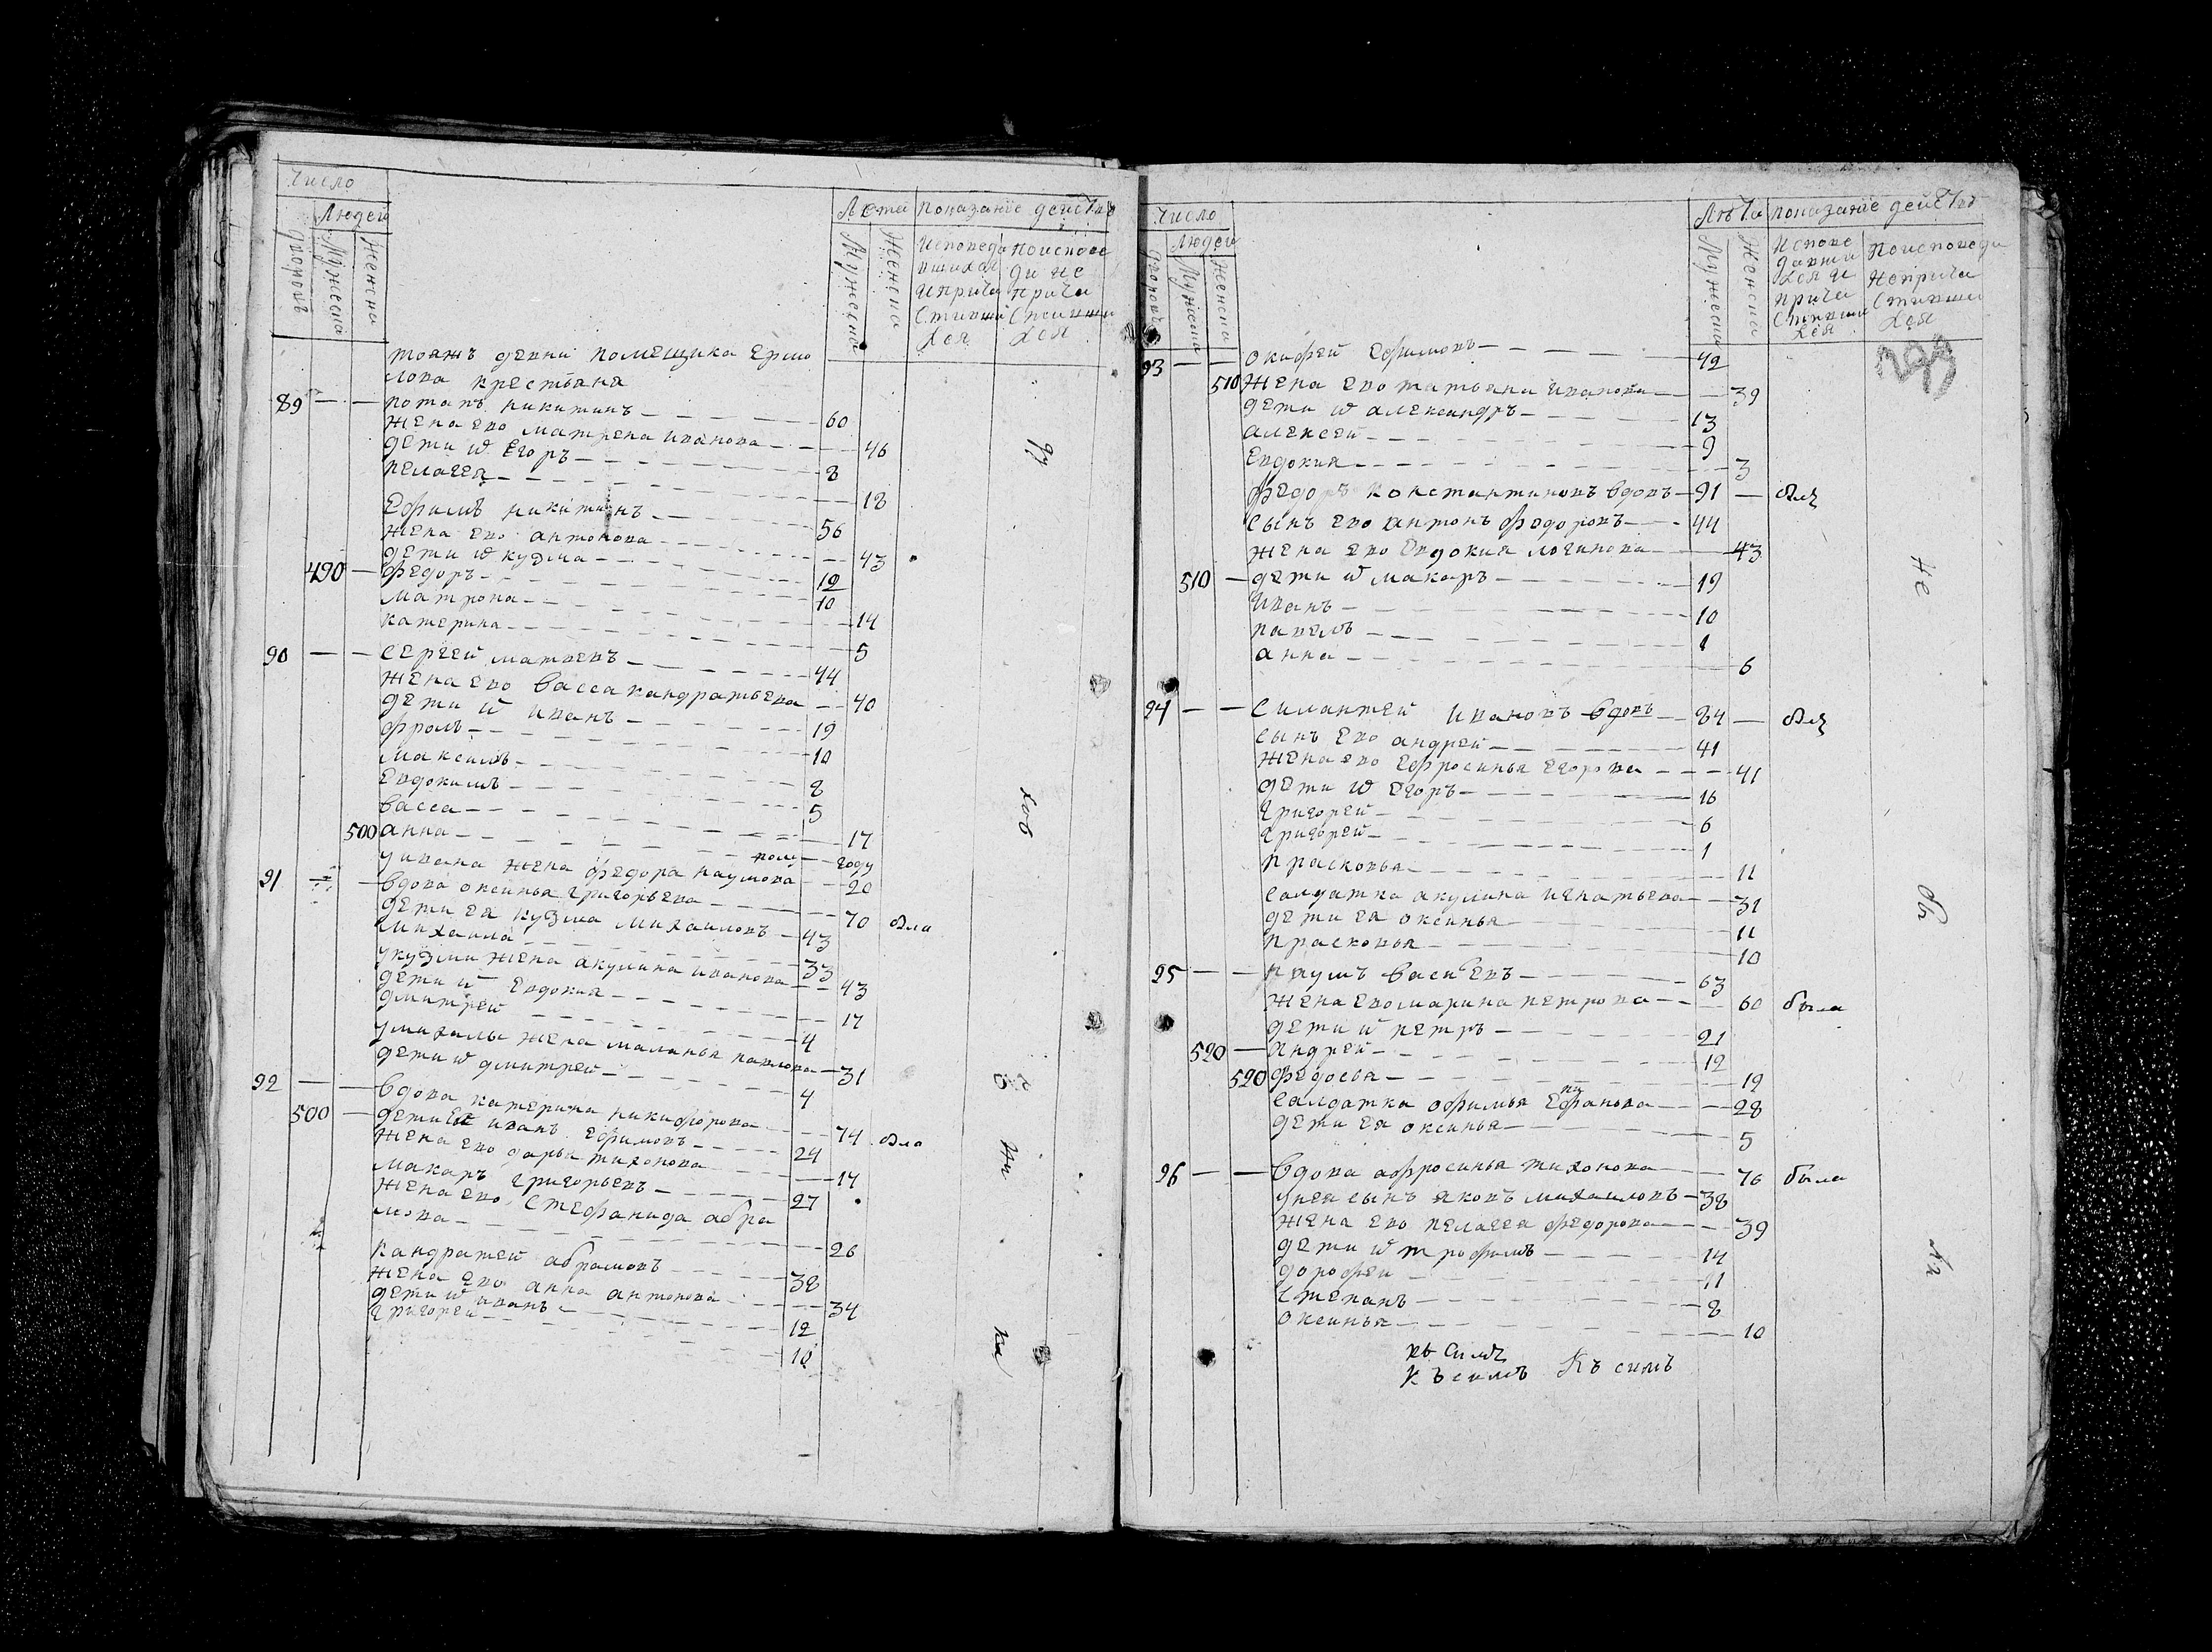 Число
Людей
Лета показание действо
дворовъ Мужеска Женска
Мужеска Женска
Исповеда
вшихся
и прича
стивши
хся
По испове
ди не
прича
стивши
хся
тояжъ девни помещика Ермо
лова крестьяня
89 — — потапъ никитинъ — 60
жена ево матрена иванова — 46
дети ѿ Егоръ — 8
пелагея — 18
Ефимъ никитинъ — 56
жена ево антонова — 43
дети ѿ кузма — 12
490 — федоръ — 10
матрона — 14
катерина — 5
90 — — сергей матвевъ — 44
жена ево васса кандратьева — 40
дети ѿ иванъ — 19
фролъ — 10
максимъ — 8
Евдокимъ — 5
васса — 17
500 анна — полу году
у ивана жена федора наумова — 20
91 — — вдова оксинья григорьева — 70 была
дети ея кузма михаиловъ — 43
михаила — 33
у кузми жена акулина иванова — 43
дети ѿ Евдокия — 17
дмитрей — 4
у михалы жена маланья павлова — 31
дети ѿ дмитрей — 4
92 — — вдова катерина никифорова — 74 была
500 — дети Ея иванъ Ефимовъ — 24
жена ево дарья тихонова — 17
макаръ григорьевъ — 27
жена ево стефанида абра
мова — 26
кандратей абрамовъ — 38
жена ево анна антонова — 34
дети ѿ иванъ — 12
григорей — 10
Число
Людей
Лѣта показание действо
дворовъ Мужеска Женска
Мужеска Женска
Испове
давши
хся и
прича
стивши
хся
По исповеди
не прича
стивши
хся
93 — — окифей Ефимовъ — 42
510 жена ево татьяна иванова — 39
дети ѿ александръ — 13
алексей — 9
Евдокия — 3
федоръ константиновъ вдовъ — 91 — былъ
сынъ ево антонъ федоровъ — 44
жена ево Евдокия логинова — 43
510 — дети ѿ макаръ — 19
иванъ — 10
павелъ — 1
анна — 6
94 — — силантей ивановъ вдовъ — 84 — былъ
сынъ ево андрей — 41
жена ево Ефросинья Егорова — 41
дети ѿ Егоръ — 16
григорей — 6
григорей — 1
прасковья — 11
салдатка акулина игнатьева — 31
дети ея оксинья — 11
прасковья — 10
95 — — наумъ васиевъ — 63
жена ево марина петрова — 60 была
дети ѿ петръ — 21
520 — андрей — 12
520 федосья — 19
салдатка офимья Епифанова — 28
дети ея оксинья — 5
96 — — вдова афросинья тихонова — 76 была
у нея сынъ яковъ михаиловъ — 38
жена ево пелагея федорова — 39
дети ѿ трофимъ — 14
дорофеи — 11
степанъ — 8
оксинья — 10
къ симъ
къ симъ Къ симъ